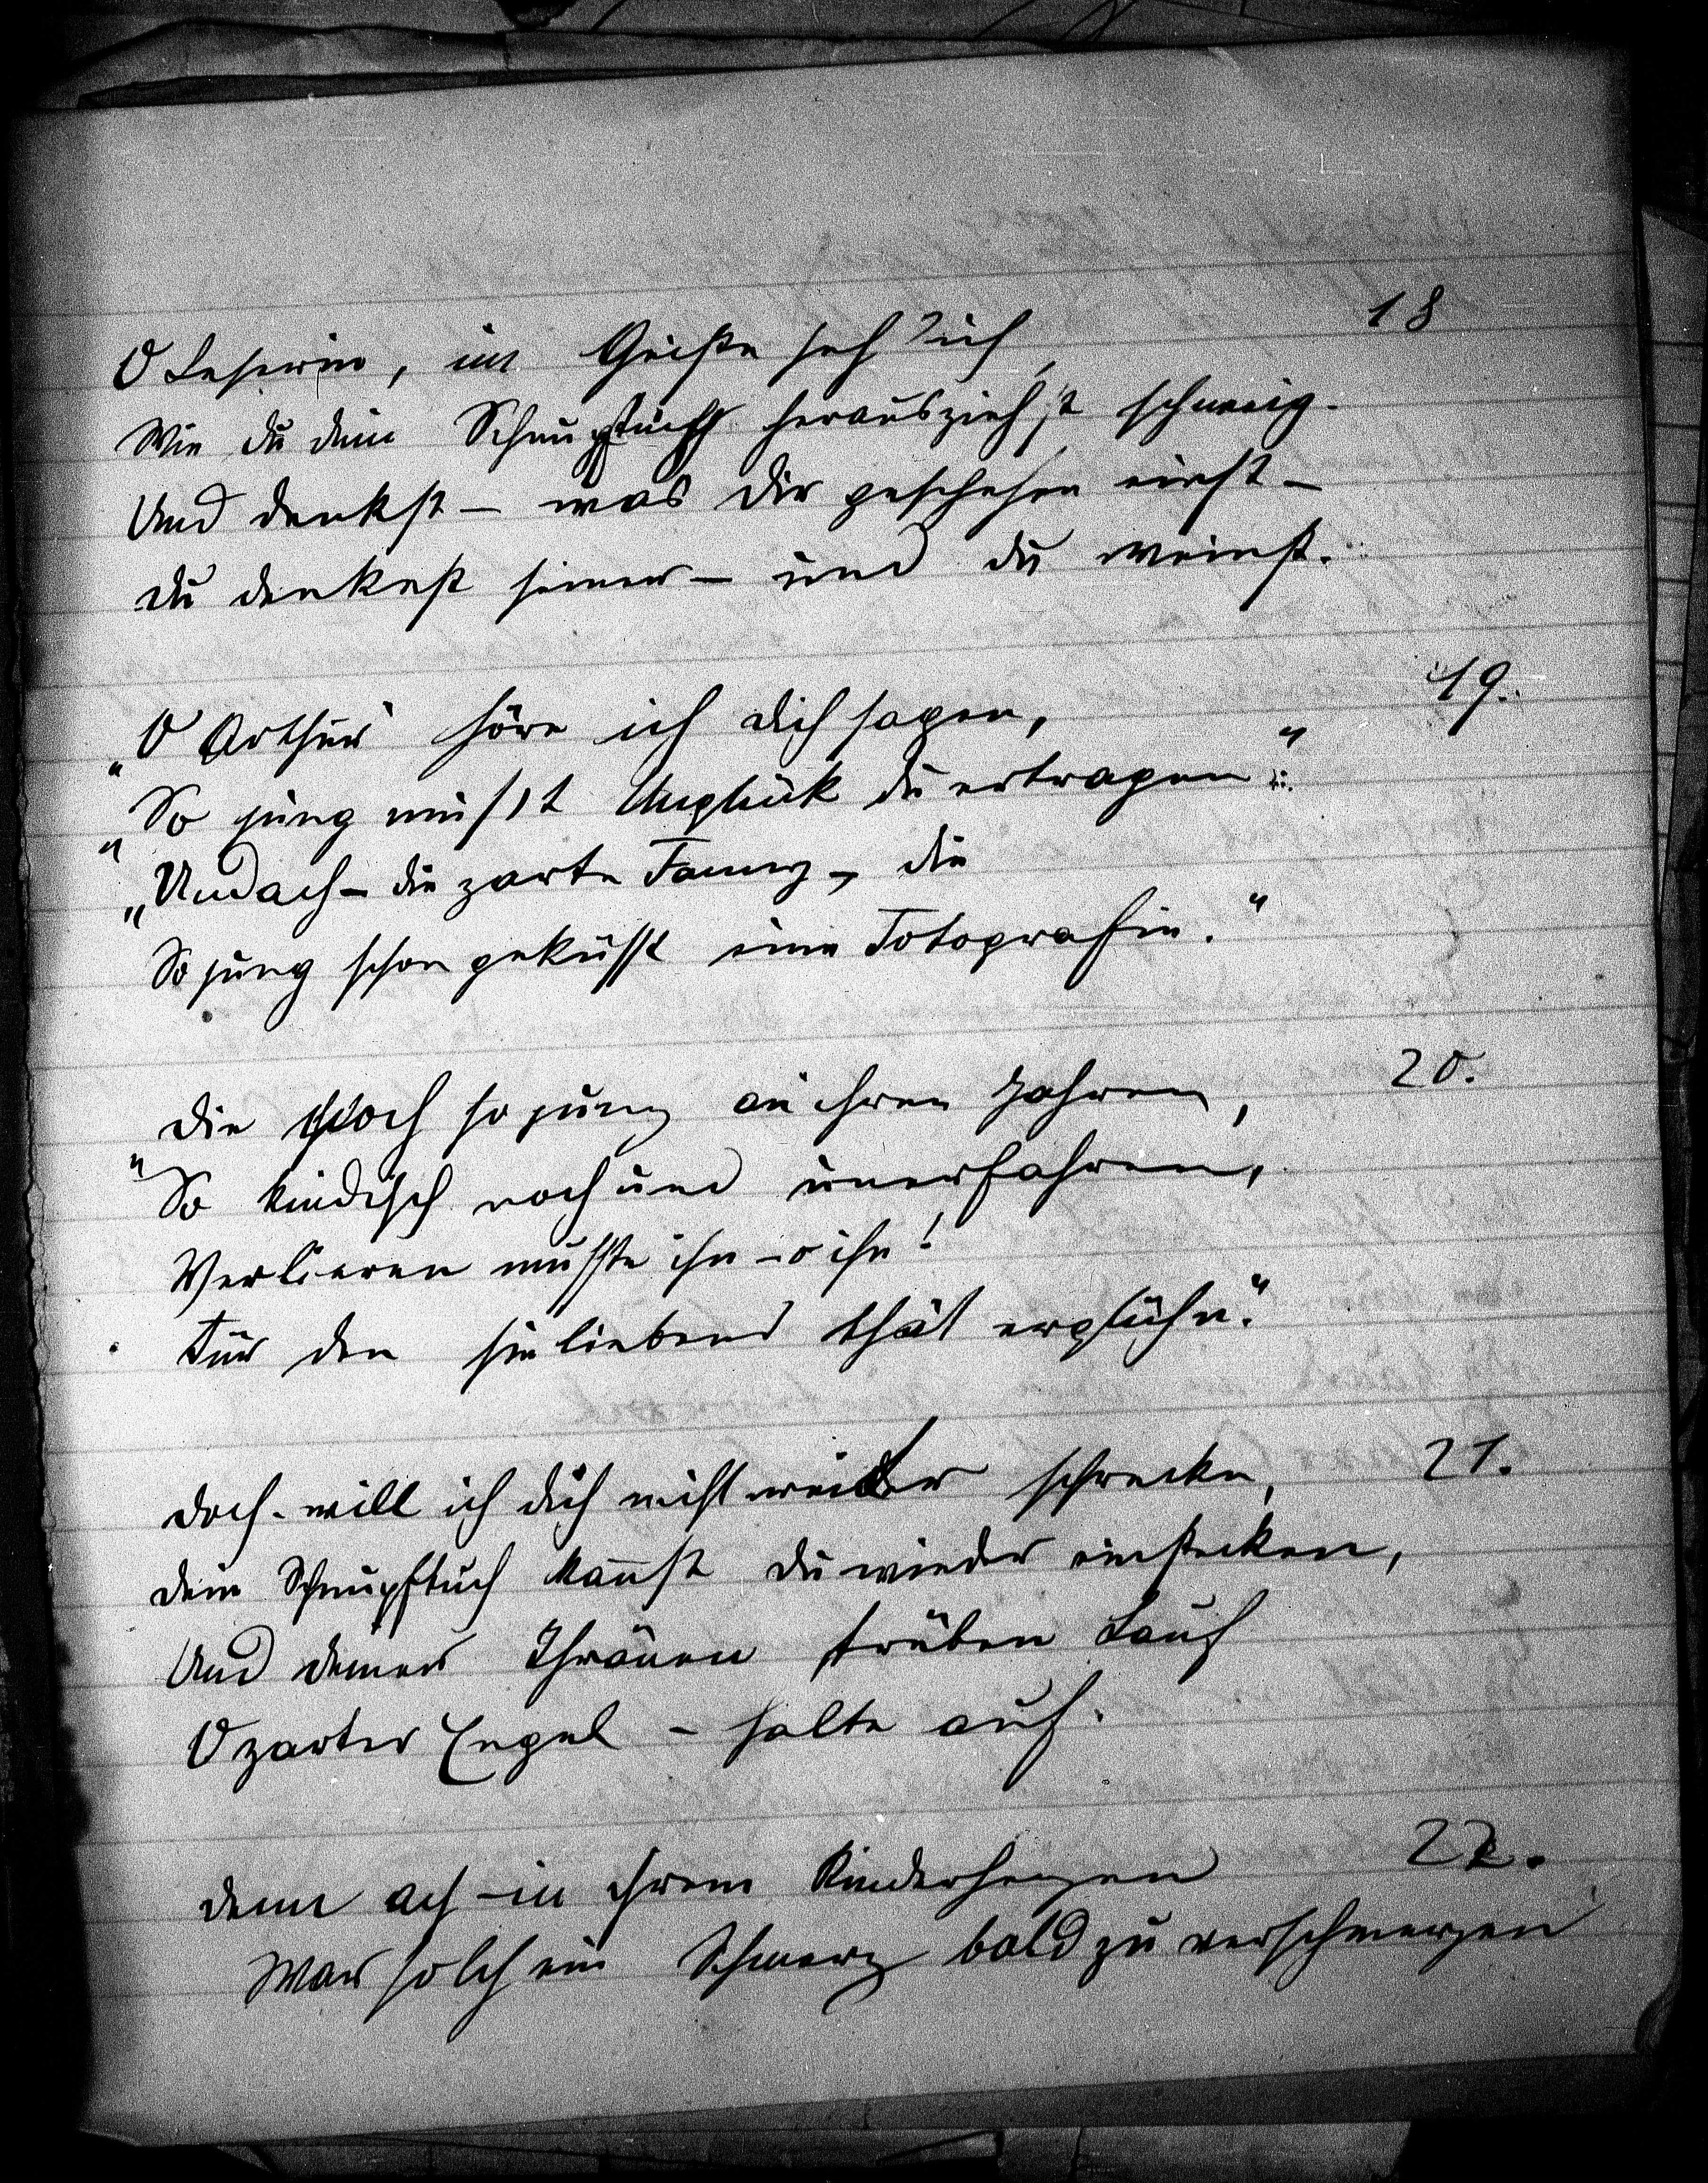 18
O Leserin, im Geiste seh' ich,
Wie du dein Schnupftuch herausziehst schneuzig.
Und denkst – was dir geschehen einst –
du denkest seiner – und du weinst.
19.
„O Arthur" höre ich dich sagen,
„So jung mußst Unglück du ertragen"
„Und ach – die zarte Fanny –, die
So jung schon geküsst eine Fotografie."
20.
die doch so jung an ihren Jahren,
"So kindisch noch und unerfahren,
Verlieren musste ihn – o ihn!
Für den sie liebend thät erglühn."
21.
doch will ich dich nicht weiter schrecken,
dein Schnupftuch kannst du wieder einstecken,
Und deiner Thränen trüben Lauf
O zarter Engel – halte auf.
22.
denn ach – in ihrem Kinderherzen
War solch ein Schmerz bald zu verschmerzen